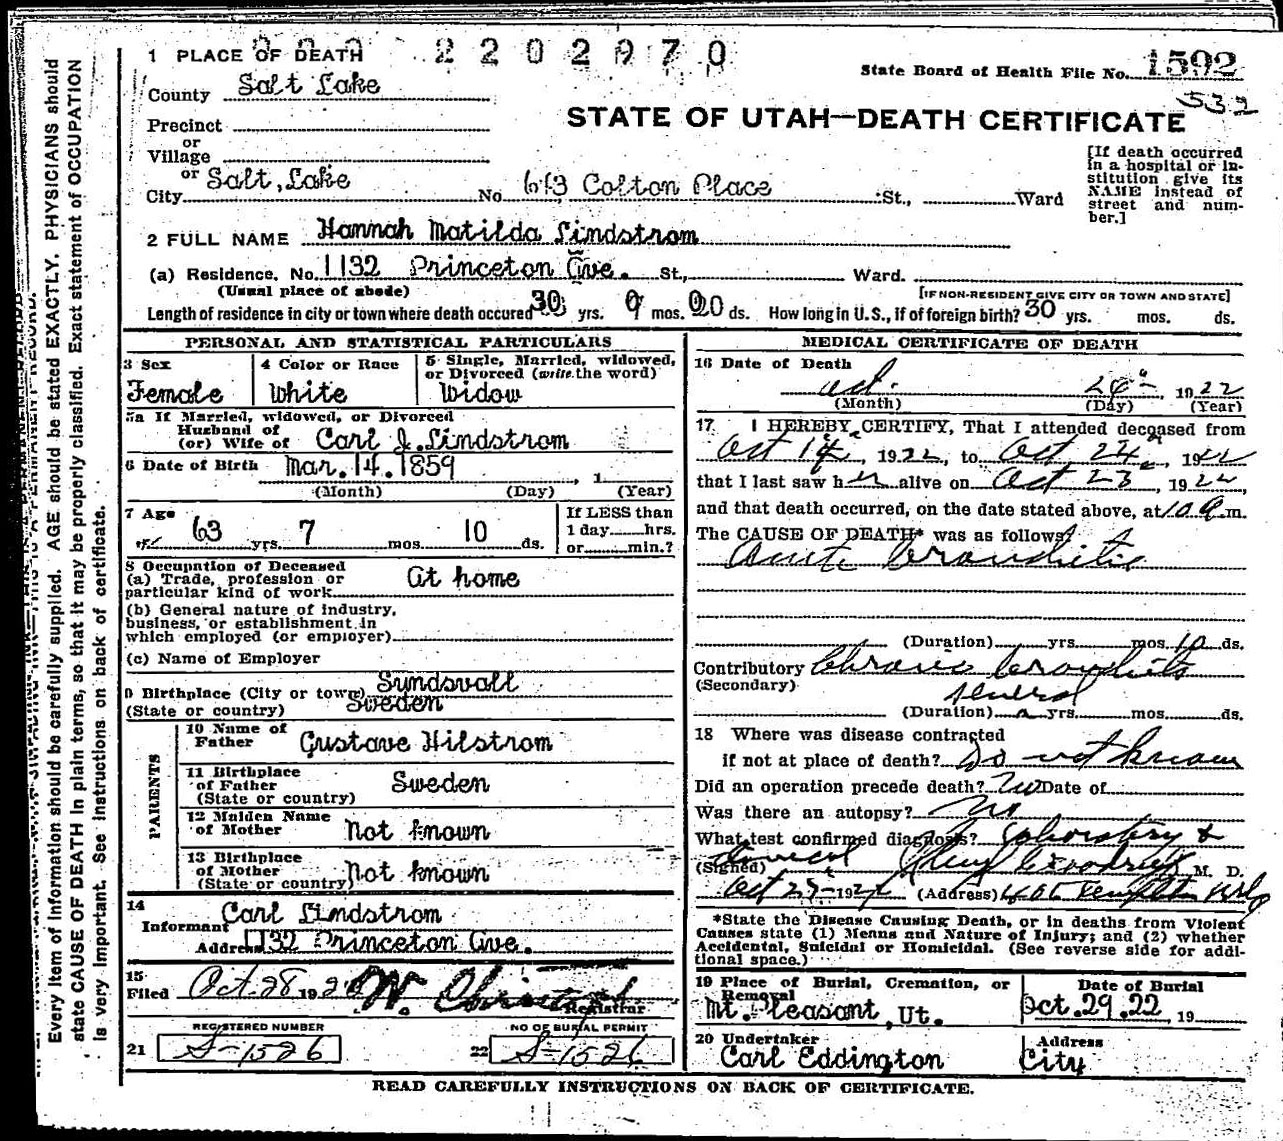 2202970
1 PLACE OF DEATH
State Board of Health File No. 1592
532
County Salt Lake
STATE OF UTAH—DEATH CERTIFICATE
Precinct
or
Village
or
City Salt, Lake No. 613 Colton Place St., Ward
[If death occurred in a hospital or in-
stitution give its
NAME instead of
street and num-
ber.]
2 FULL NAME Hannah Matilda Lindstrom
(a) Residence. No. 1132 Princeton Ave. St., Ward.
(Usual place of abode) [IF NON-RESIDENT GIVE CITY OR TOWN AND STATE]
Length of residence in city or town where death occured 30 yrs. mos. ds. How long in U.S., if of foreign birth? 30 yrs. mos. ds.
PERSONAL AND STATISTICAL PARTICULARS
3 Sex
Female
4 Color or Race
White
5 Single, Married, widowed,
or Divorced (write the word)
Widow
5a If Married, widowed, or Divorced
Husband of
(or) Wife of Carl J. Lindstrom
6 Date of Birth Mar. 14. 1859, 1
(Month) (Day) (Year)
7 Age
63 yrs. 7 mos. 10 ds.
If LESS than
1 day hrs.
or min.?
8 Occupation of Deceased
(a) Trade, profession or
particular kind of work At home
(b) General nature of industry,
business, or establishment in
which employed (or employer)
(c) Name of Employer
9 Birthplace (City or town) Sundsvall
(State or country) Sweden
PARENTS
10 Name of
Father Gustave Hilstrom
11 Birthplace
of Father Sweden
(State or country)
12 Maiden Name
of Mother Not known
13 Birthplace
of Mother Not known
(State or country)
14
Informant Carl Lindstrom
Address 1132 Princeton Ave.
15
Filed Oct. 28 192
Registrar
REGISTERED NUMBER
21 S-1526
NO OF BURIAL PERMIT
22 S-1526
MEDICAL CERTIFICATE OF DEATH
16 Date of Death
Oct. 24 1922
(Month) (Day) (Year)
17 I HEREBY CERTIFY, That I attended deceased from
Oct 14, 1922, to Oct 24, 1922
that I last saw her alive on Oct 23, 1922,
and that death occurred, on the date stated above, at 10 a. m.
The CAUSE OF DEATH* was as follows:
Acute bronchitis
(Duration) yrs. mos. 10 ds.
Contributory Chronic bronchitis
(Secondary) several
(Duration) yrs. mos. ds.
18 Where was disease contracted
if not at place of death? Do not know
Did an operation precede death? No Date of
Was there an autopsy? No
What test confirmed diagnosis? Laboratory &
(Signed) M. D.
Oct 27-1922 (Address) 405 Templeton Bldg
*State the Disease Causing Death, or in deaths from Violent
Causes state (1) Means and Nature of Injury; and (2) whether
Accidental, Suicidal or Homicidal. (See reverse side for addi-
tional space.)
19 Place of Burial, Cremation, or
Removal
Mt. Pleasant, Ut.
Date of Burial
Oct. 29. 22, 19
20 Undertaker
Carl Eddington
Address
City
READ CAREFULLY INSTRUCTIONS ON BACK OF CERTIFICATE.
Every item of information should be carefully supplied. AGE should be stated EXACTLY. PHYSICIANS should
state CAUSE OF DEATH in plain terms, so that it may be properly classified. Exact statement of OCCUPATION
is very important. See instructions on back of certificate.